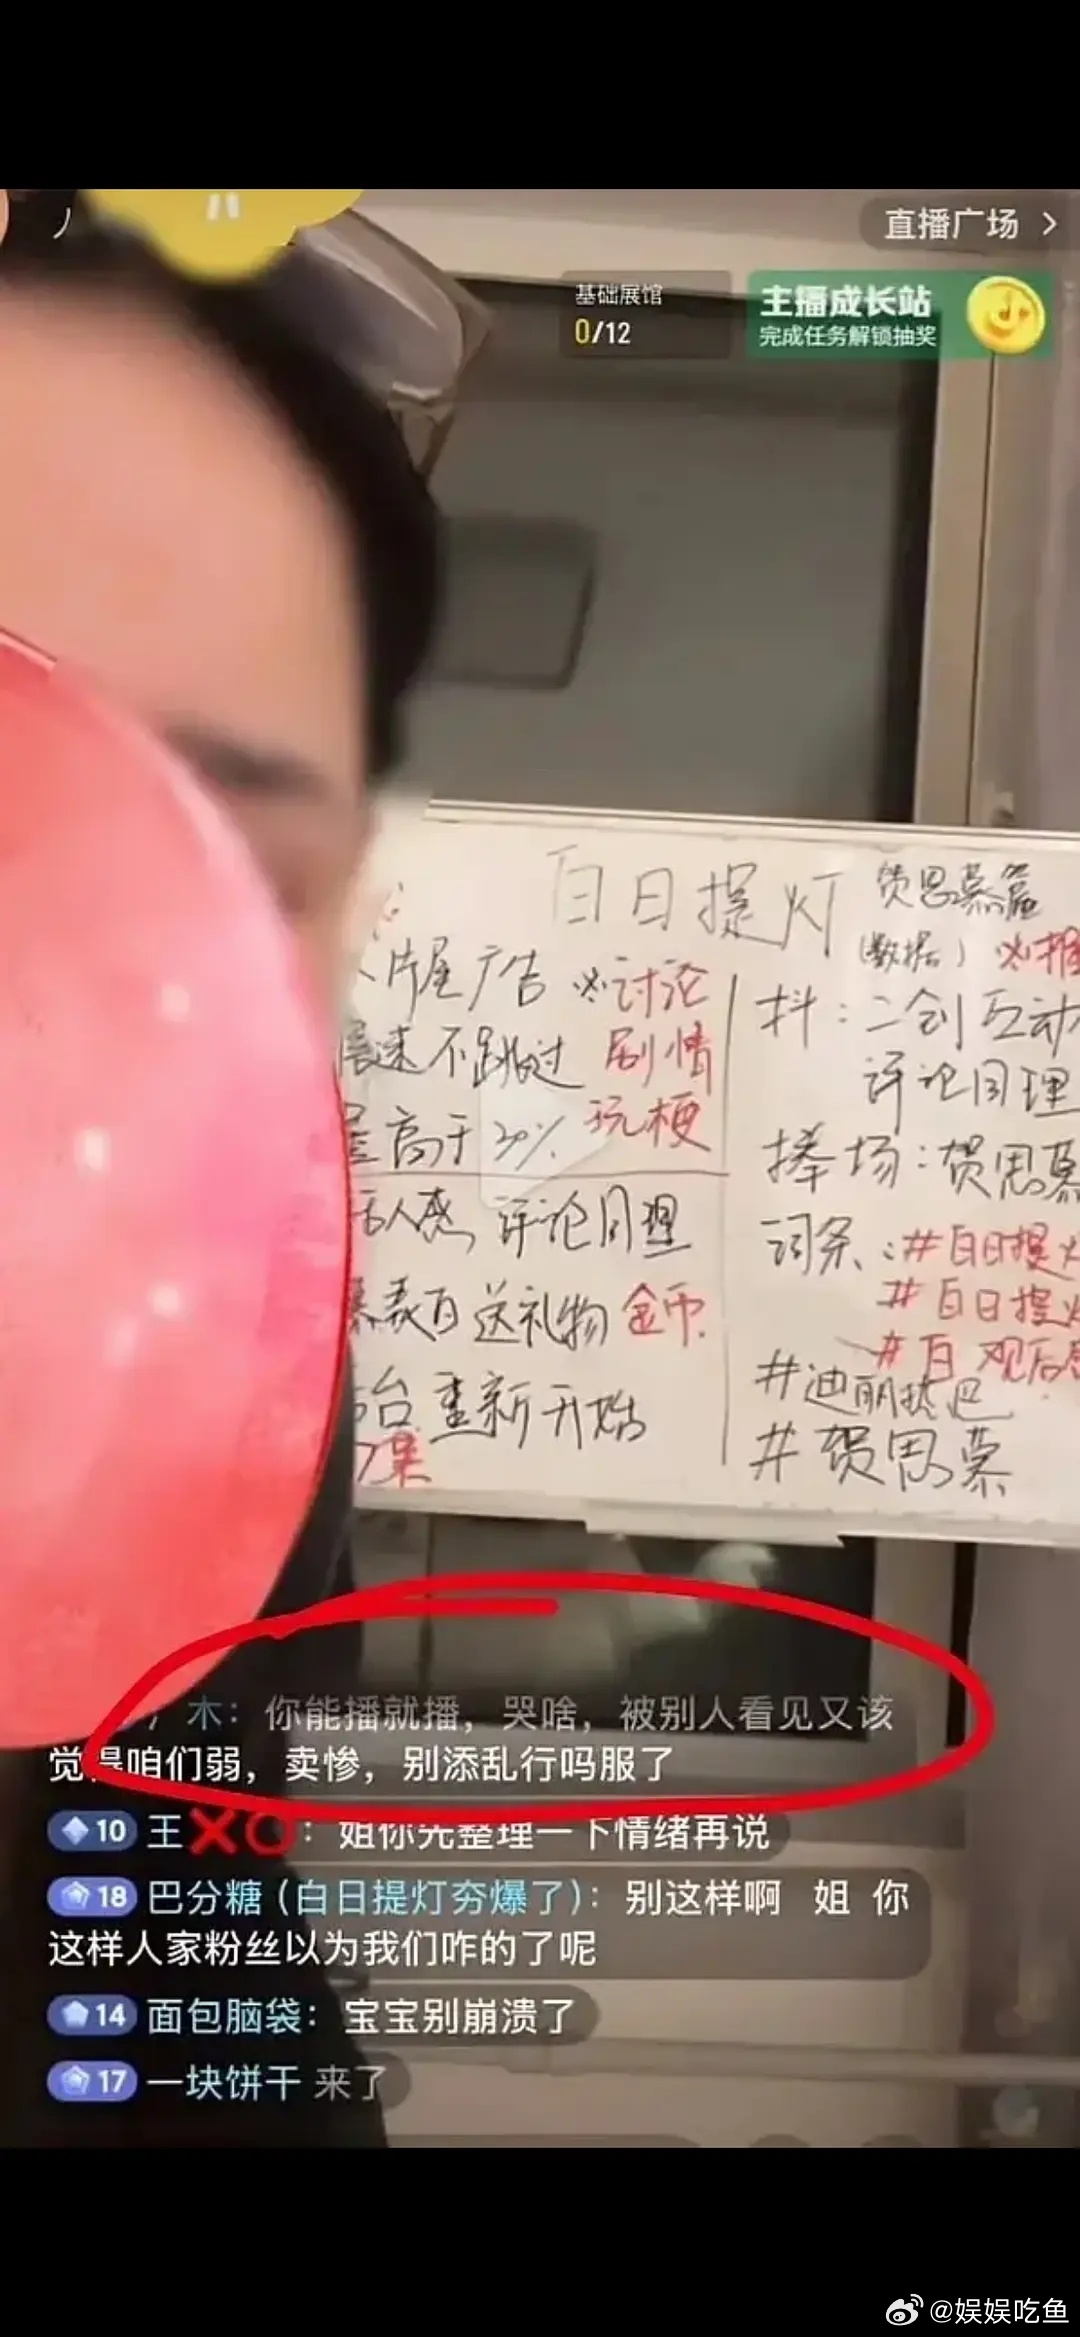 直播广场 >
基础展馆
0/12
主播成长站
完成任务解锁抽奖
白日提灯
贺思慕篇
(数据) 必推
片尾广告 必讨论
倍速不跳过 剧情
高于30% 玩梗
活人感 评论同理
表白送礼物 金币
台重新开始
集
抖:二创互动
评论同理
捧场:贺思慕
词条:#白日提灯
#白日提灯
#白 观后感
#迪丽热巴
#贺思慕
木:你能播就播,哭啥,被别人看见又该
觉得咱们弱,卖惨,别添乱行吗服了
10 王❌⭕:姐你先整理一下情绪再说
18 巴分糖(白日提灯夯爆了):别这样啊 姐 你
这样人家粉丝以为我们咋的了呢
14 面包脑袋:宝宝别崩溃了
17 一块饼干 来了
@娱娱吃鱼